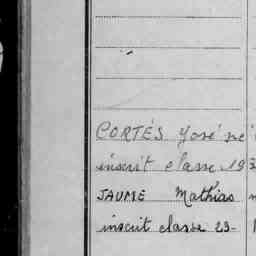 CORTÉS José né
inscrit classe 193
JAUME Mathias
inscrit classe 23-